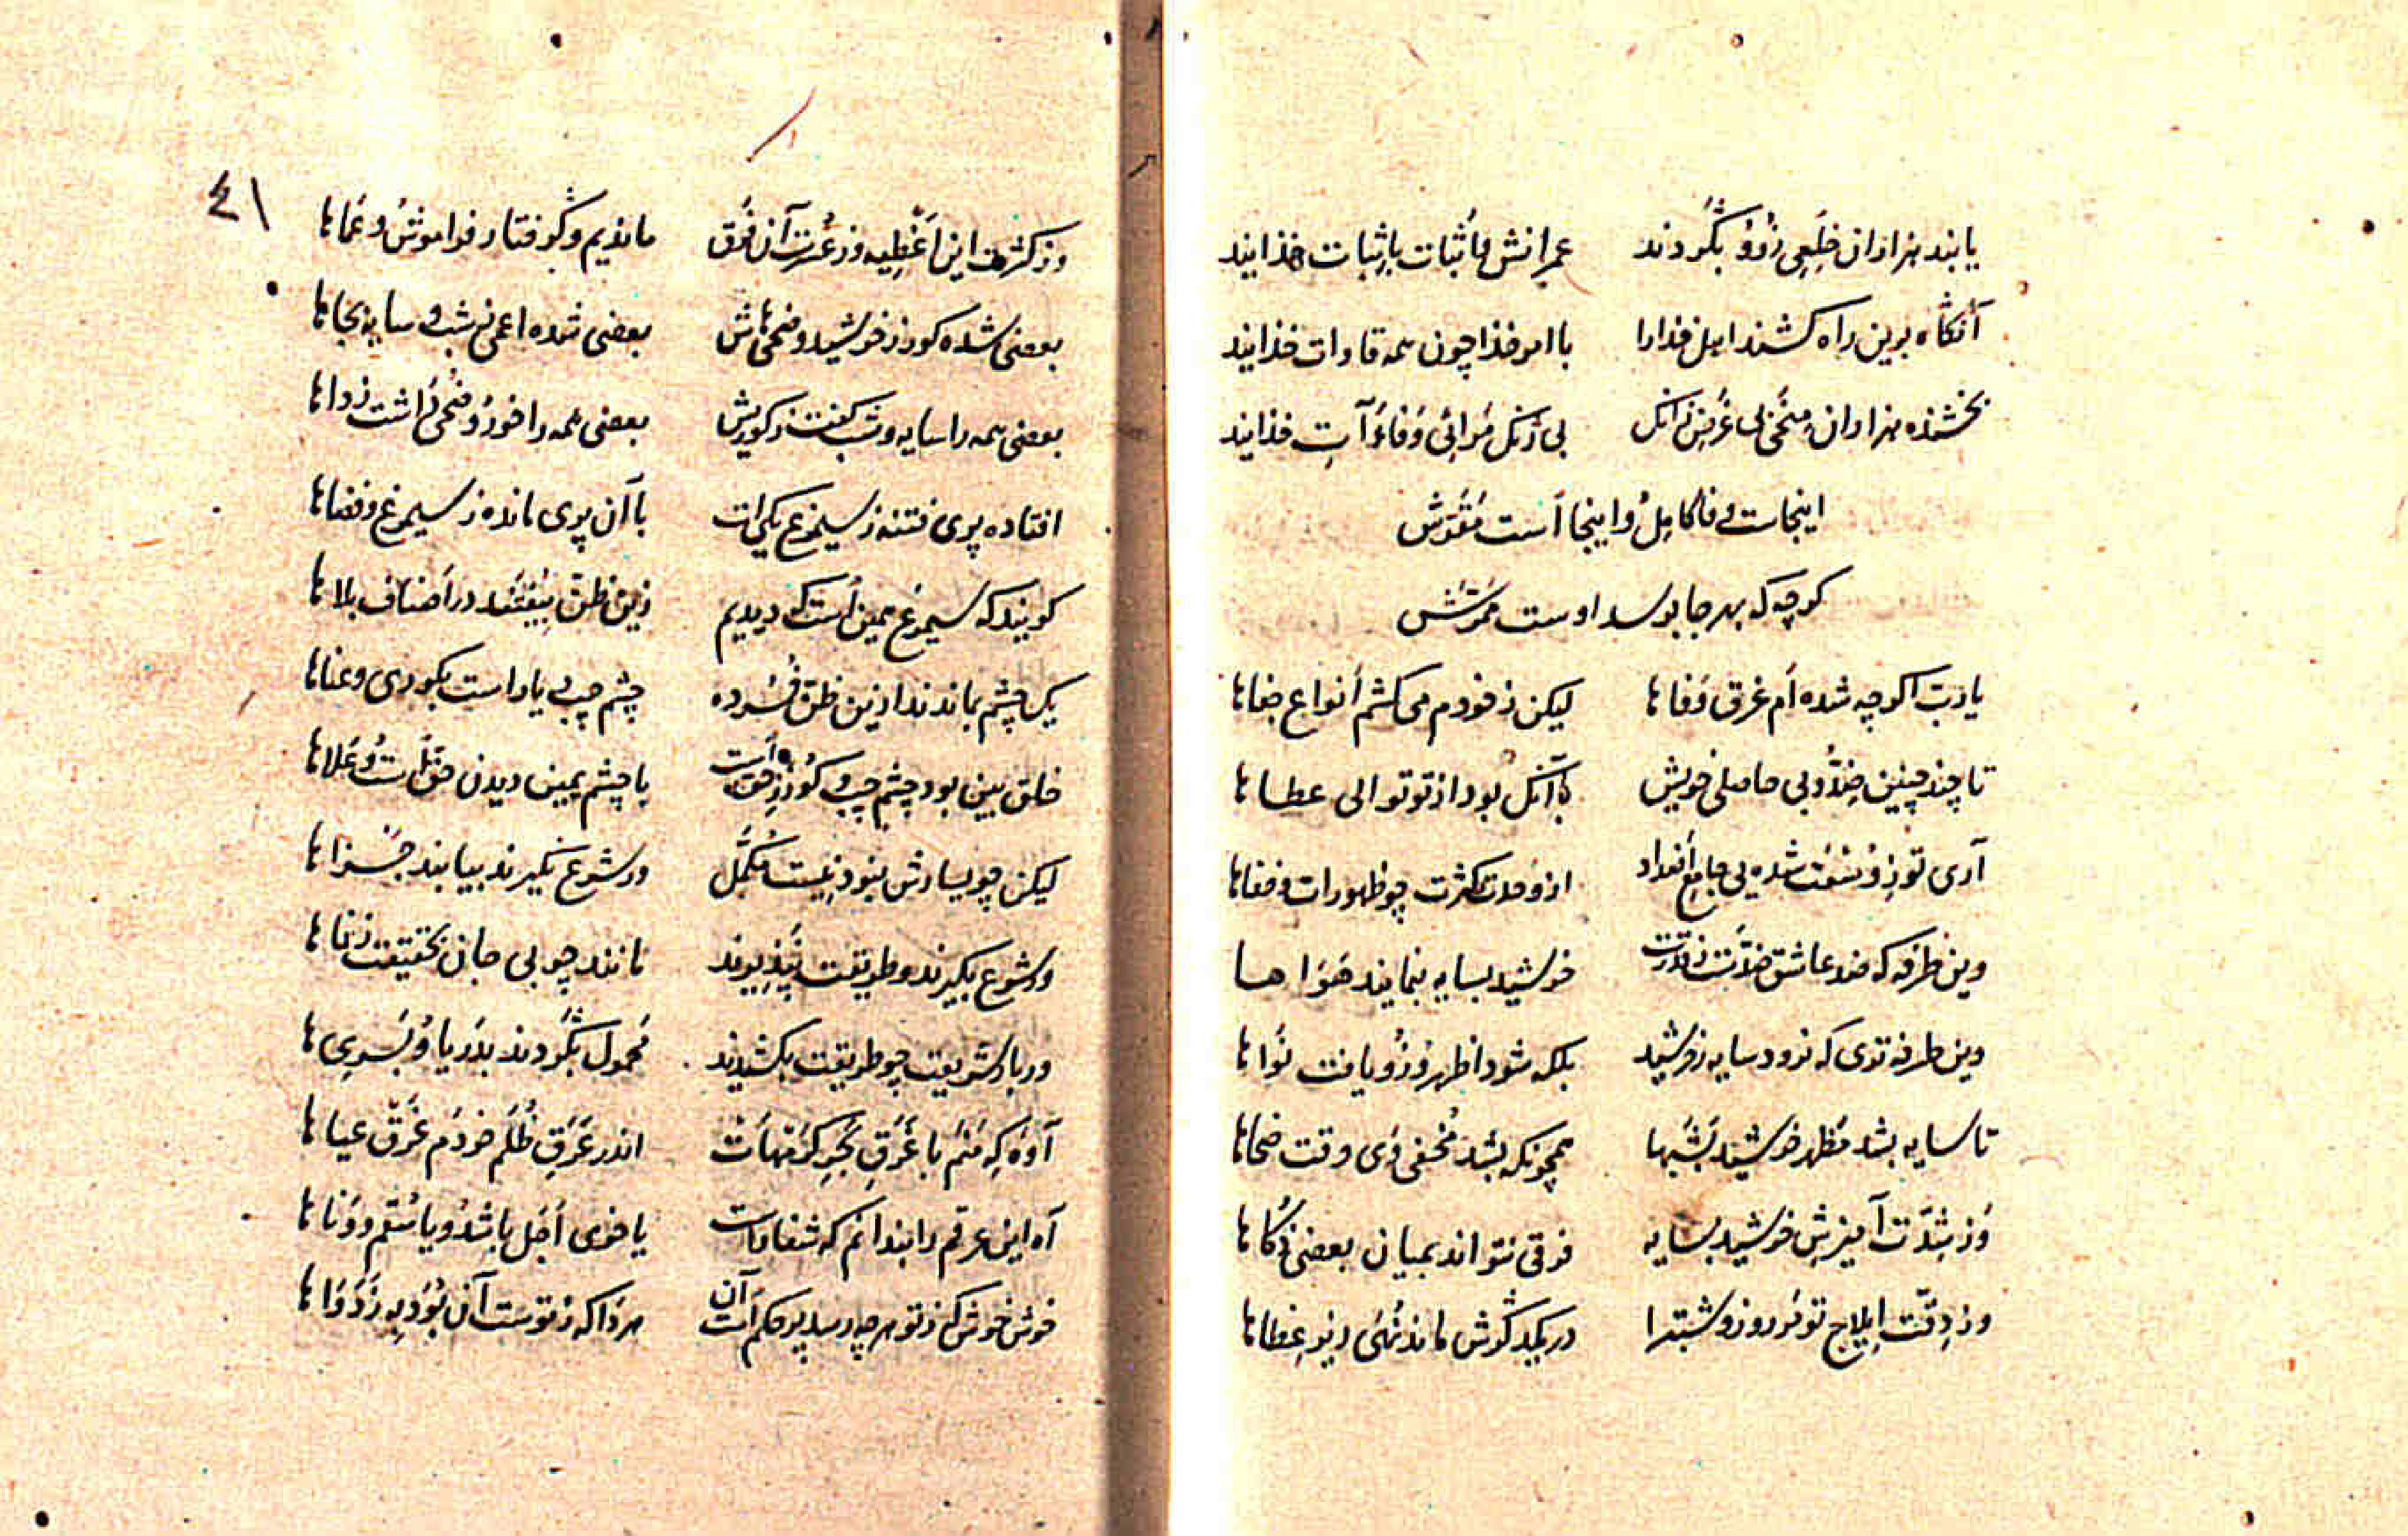 یابند هزاران خلعی زو و بگردند عمرانش باثبات خدایند
آنگاه برین راه کشند اهل خدا را با امر خدا چون همه قادات خدایند
بخشنده هزاران بی غرض انکل بی زنکل مرائی وفاء آت خدایند
اینجاست وفا کامل و اینجا است مقوش
کوچه که بهر جا بوسد اوست
یا رب اکوچه شده ام غرق وفا ها لیکن ز خودم می کشم انواع جفاها
تا چند چنین ضد و بی حاصلی خویش با آنکل بود از تو توالی عطا ها
آری تو ز وسعت شده یی جامع اضداد از وحدت کثرت چو ظهورات و خفاها
وین طرفه که ضد عاشق ضد است ز قدرت خورشید بسایه بنمایند هوا ها
وین طرفه توی که نرود سایه ز خرشید بلکه شود اظهر و زو یافت نوا ها
تا سایه بشد مظهر خورشید بشبها همچونکه بشد مخفی وی وقت ضحاها
وز شدت آمیزش خورشید بسایه فرقی نتواند بمیان بعضی ذکا ها
وز دقت ایلاج تو مر روز و شبترا در یکدگرش ماند نهی زیر غطاها
٤١
وز کثرت این اغطیه وز عسرت آن فرق ماندیم و گرفتار فراموش و عماها
بعضی شده کور ز خورشید و ضحی هاش بعضی شده اعمی ز شب و سایه بجاها
بعضی همه را سایه و شب گفت ز کوریش بعضی همه را خور و ضحی داشت ز داها
افتاده پری فتنه ز سیمرغ یکی رات با آن پری مانده ز سیمرغ و فضاها
کویند که سیمرغ همین است که دیدیم زین ظن بیفتند در اصناف بلا ها
یک چشم بماندند ازین ظن فسرده چشم چپ یا راست بکوری و عناها
خلق بین بود چشم چپ و کور ز حق است یا چشم یمین دیدن حق است و علاها
لیکن چو یسارش بنود نیست مکمل ور شرع نگیرند بیابند جزا ها
ور شرع بگیرند و طریقت نپذیرند مانند چو بی جان بحقیقت ز نما ها
ور بار شریعت چو طریقت بکشیدند محمول بگردند بدریا و بسری ها
آوه که منم با غرق بحر کرمهات اندر عرق ظلم خودم غرق عیا ها
آه این عرقم را بندانم که شفا راست یا خوی اجل باشد و یا سقم و ونا ها
خوش خوش که ز تو هر چه رسد پر حکم است آن هر دا که ز توست آن بود به ز دواها